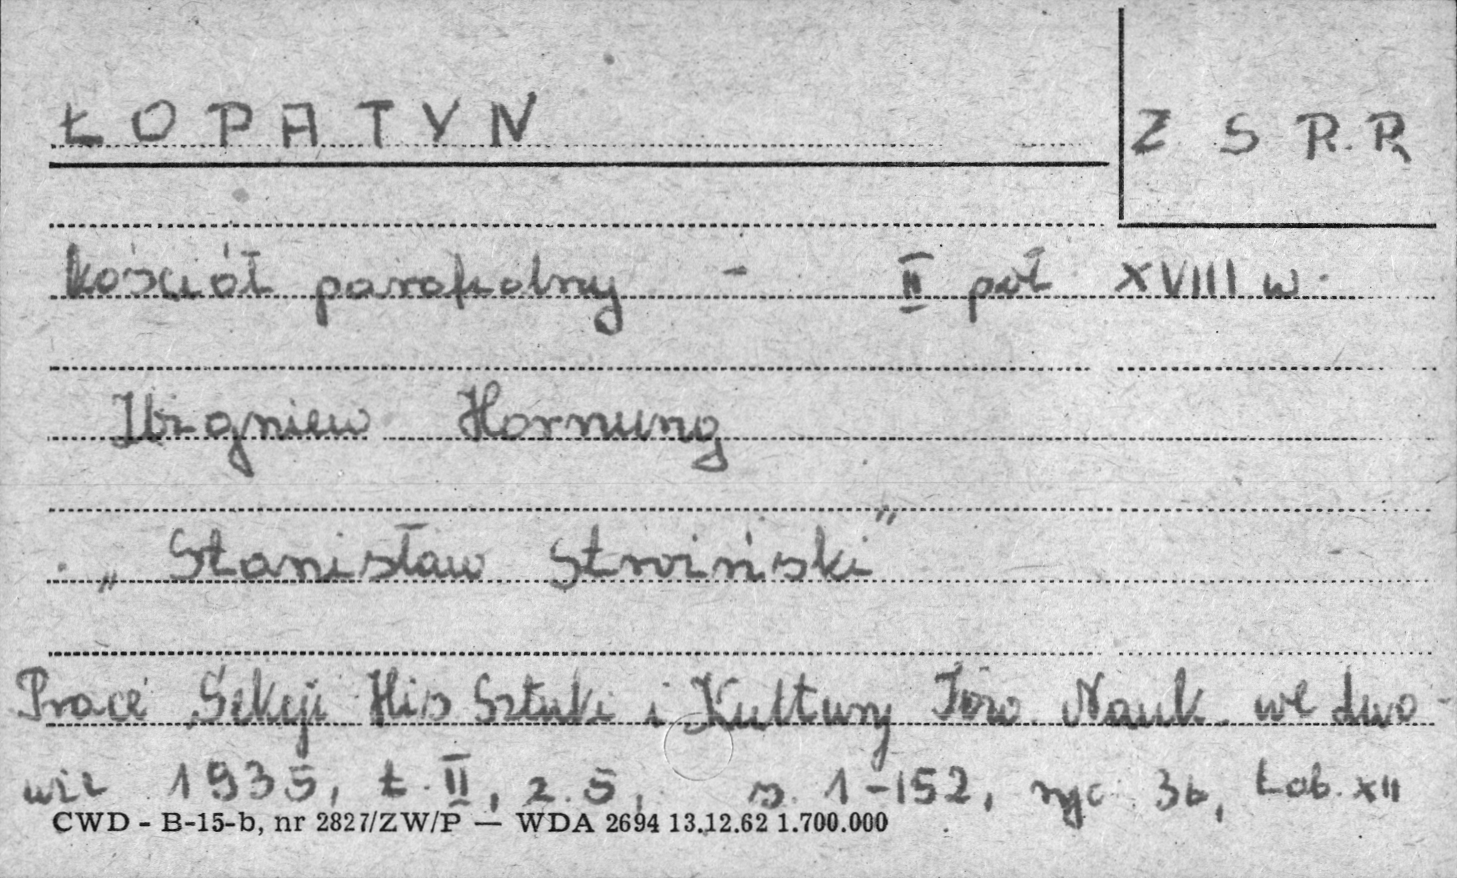 ŁOPATYN
Z S R.R
Kościół parafialny - II poł XVIII w.
Zbigniew Hornung
„Stanisław Stroiński"
Prace Sekcji His Sztuki i Kultury Tow. Nauk. we Lwo-
wie 1935, t. II, z. 5, s. 1-152, ryc. 36, tab. XII
CWD - B-15-b, nr 2827/ZW/P — WDA 2694 13.12.62 1.700.000